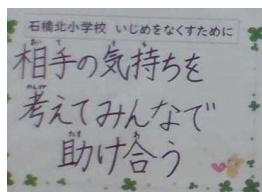 石橋北小学校 いじめをなくすために
相手の気持ちを
考えてみんなで
助け合う